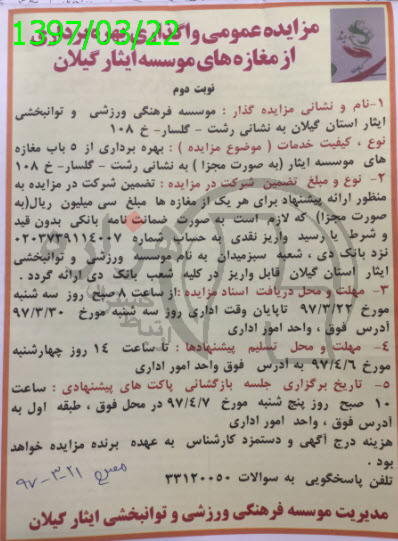 1397/03/22
مزایده عمومی واگذاری بهره برداری
از مغازه های موسسه ایثار گیلان
نوبت دوم
۱-نام و نشانی مزایده گذار : موسسه فرهنگی ورزشی و توانبخشی
ایثار استان گیلان به نشانی رشت - گلسار- خ ۱۰۸
نوع ، کیفیت خدمات ( موضوع مزایده ) : بهره برداری از ۵ باب مغازه
های موسسه ایثار (به صورت مجزا ) به نشانی رشت - گلسار- خ ۱۰۸
۲- نوع و مبلغ تضمین شرکت در مزایده : تضمین شرکت در مزایده به
منظور ارائه پیشنهاد برای هر یک از مغازه ها مبلغ سی میلیون ریال(به
صورت مجزا) که لازم است به صورت ضمانت نامه بانکی بدون قید
و شرط یا رسید واریز نقدی به حساب شماره
نزد بانک دی ، شعبه سبزمیدان به نام موسسه ورزشی و توانبخشی
ایثار استان گیلان قابل واریز در کلیه شعب بانک دی ارائه گردد .
۳- مهلت و محل دریافت اسناد مزایده :از ساعت ۸ صبح روز سه شنبه
مورخ ۹۷/۳/۲۲ تاپایان وقت اداری روز سه شنبه مورخ ۹۷/۳/۳۰
آدرس فوق ، واحد امور اداری
۴- مهلت و محل تسلیم پیشنهادها : تا ساعت ۱۴ روز چهارشنبه
مورخ ۹۷/۴/۶ به آدرس فوق واحد امور اداری
۵- تاریخ برگزاری جلسه بازگشائی پاکت های پیشنهادی : ساعت
۱۰ صبح روز پنج شنبه مورخ ۹۷/۴/۷ در محل فوق ، طبقه اول به
آدرس فوق ، واحد امور اداری
هزینه درج آگهی و دستمزد کارشناس به عهده برنده مزایده خواهد
بود .
تلفن پاسخگویی به سوالات ۳۳۱۲۰۰۵۰
۹۷-۳-۲۱
مدیریت موسسه فرهنگی ورزشی و توانبخشی ایثار گیلان